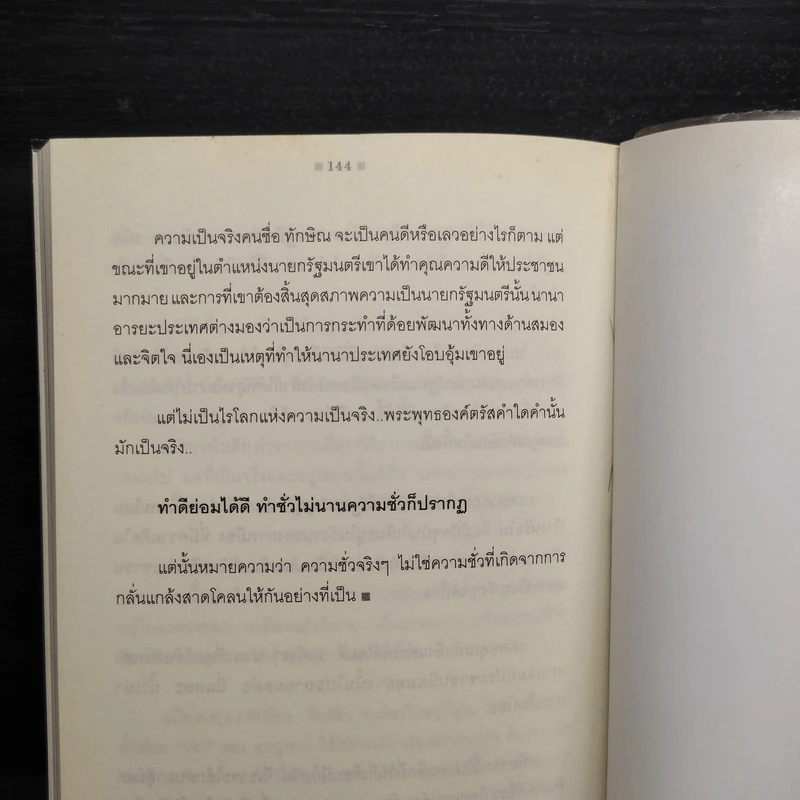 ■ 144 ■
ความเป็นจริงคนชื่อ ทักษิณ จะเป็นคนดีหรือเลวอย่างไรก็ตาม แต่
ขณะที่เขาอยู่ในตำแหน่งนายกรัฐมนตรีเขาได้ทำคุณความดีให้ประชาชน
มากมาย และการที่เขาต้องสิ้นสุดสภาพความเป็นนายกรัฐมนตรีนั้น นานา
อารยะประเทศต่างมองว่าเป็นการกระทำที่ด้อยพัฒนาทั้งทางด้านสมอง
และจิตใจ นี่เองเป็นเหตุที่ทำให้นานาประเทศยังโอบอุ้มเขาอยู่
แต่ไม่เป็นไรโลกแห่งความเป็นจริง..พระพุทธองค์ตรัสคำใดคำนั้น
มักเป็นจริง..
ทำดีย่อมได้ดี ทำชั่วไม่นานความชั่วก็ปรากฏ
แต่นั้นหมายความว่า ความชั่วจริงๆ ไม่ใช่ความชั่วที่เกิดจากการ
กลั่นแกล้งสาดโคลนให้กันอย่างที่เป็น ■